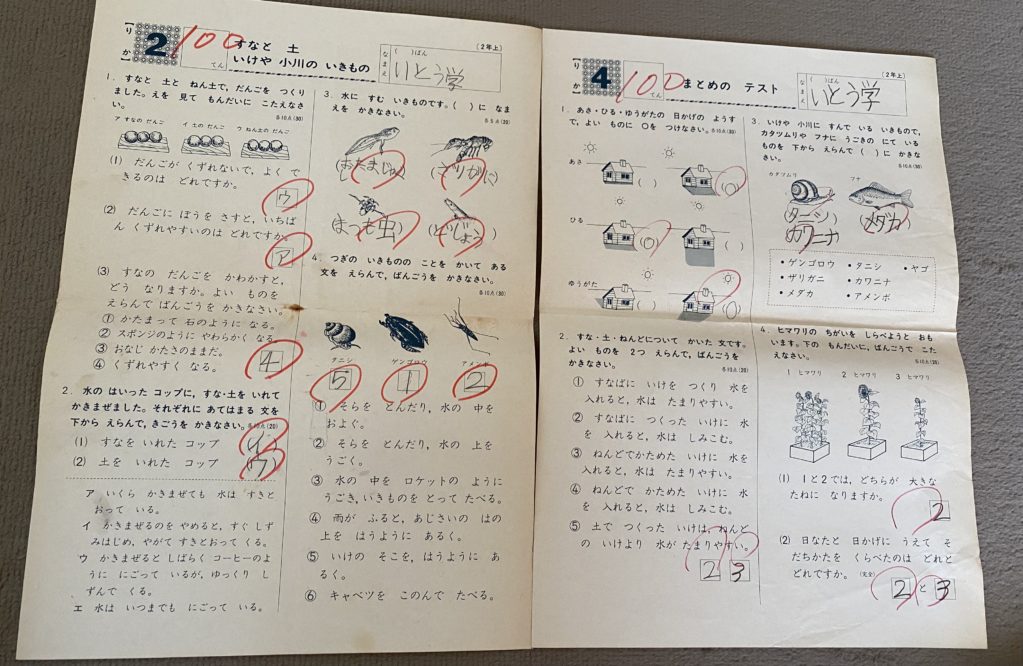 【りか】
2
100
てん
すなと 土
いけや 小川の いきもの
(2年上)
なまえ
( )ばん
いとう学
1. すなと 土と ねん土で，だんごを つくり
ました。えを 見て もんだいに こたえなさ
い。
各10点(30)
ア すなの だんご
イ 土の だんご
ウ ねん土の だんご
(1) だんごが くずれないで，よく で
きるのは どれですか。
ウ
(2) だんごに ぼうを さすと，いちば
ん くずれやすいのは どれですか。
ア
(3) すなの だんごを かわかすと，
どう なりますか。よい ものを
えらんで ばんごうを かきなさい。
① かたまって 石のように なる。
② スポンジのように やわらかく なる。
③ おなじ かたさのままだ。
④ くずれやすく なる。
4
2. 水の はいった コップに，すな・土を いれて
かきまぜました。それぞれに あてはまる 文を
下から えらんで，きごうを かきなさい。
各10点(20)
(1) すなを いれた コップ
イ
(2) 土を いれた コップ
ウ
ア いくら かきまぜても 水は すきと
おって いる。
イ かきまぜるのを やめると，すぐ しず
みはじめ，やがて すきとおって くる。
ウ かきまぜると しばらく コーヒーのよ
うに にごって いるが，ゆっくり し
ずんで くる。
エ 水は いつまでも にごって いる。
3. 水に すむ いきものです。( )に なま
えを かきなさい。
各5点(20)
(おたまじゃく)
(ざりがに)
(まつも虫)
(どじょう)
4. つぎの いきものの ことを かいて ある
文を えらんで，ばんごうを かきなさい。
各10点(30)
タニシ
ゲンゴロウ
アメンボ
5
1
2
① そらを とんだり，水の 中を
およぐ。
② そらを とんだり，水の 上を
うごく。
③ 水の 中を ロケットの ように
うごき，いきものを とって たべる。
④ 雨が ふると，あじさいの はの
上を はうように あるく。
⑤ いけの そこを，はうように あ
るく。
⑥ キャベツを このんで たべる。
【りか】
4
100
てん
まとめの テスト
(2年上)
なまえ
( )ばん
いとう学
1. あさ・ひる・ゆうがたの 日かげの ようす
で，よい ものに ○を つけなさい。
各10点(30)
あさ
( )
(○)
ひる
(○)
( )
ゆうがた
( )
(○)
2. すな・土・ねんどについて かいた 文です。
よい ものを 2つ えらんで，ばんごうを
かきなさい。
各10点(20)
① すなばに いけを つくり 水を
入れると，水は たまりやすい。
② すなばに つくった いけに 水
を 入れると，水は しみこむ。
③ ねんどでかためた いけに 水を
入れると，水は たまりやすい。
④ ねんどで かためた いけに 水
を 入れると，水は しみこむ。
⑤ 土で つくった いけは，ねんど
の いけより 水が たまりやすい。
2 3
3. いけや 小川に すんで いる いきもので，
カタツムリや フナに うごきの にて いる
ものを 下から えらんで ( )に かきな
さい。
各10点(30)
カタツムリ
フナ
(タニシ)
(カワニナ)
(メダカ)
•ゲンゴロウ •タニシ •ヤゴ
•ザリガニ •カワニナ
•メダカ •アメンボ
4. ヒマワリの ちがいを しらべようと おも
います。下の もんだいに，ばんごうで こた
えなさい。
各10点(20)
1 ヒマワリ
2 ヒマワリ
3 ヒマワリ
(1) 1と2では，どちらが 大きな
たねに なりますか。
2
(2) 日なたと 日かげに うえて そ
だちかたを くらべたのは どれと
どれですか。
(完全)
2 と 3